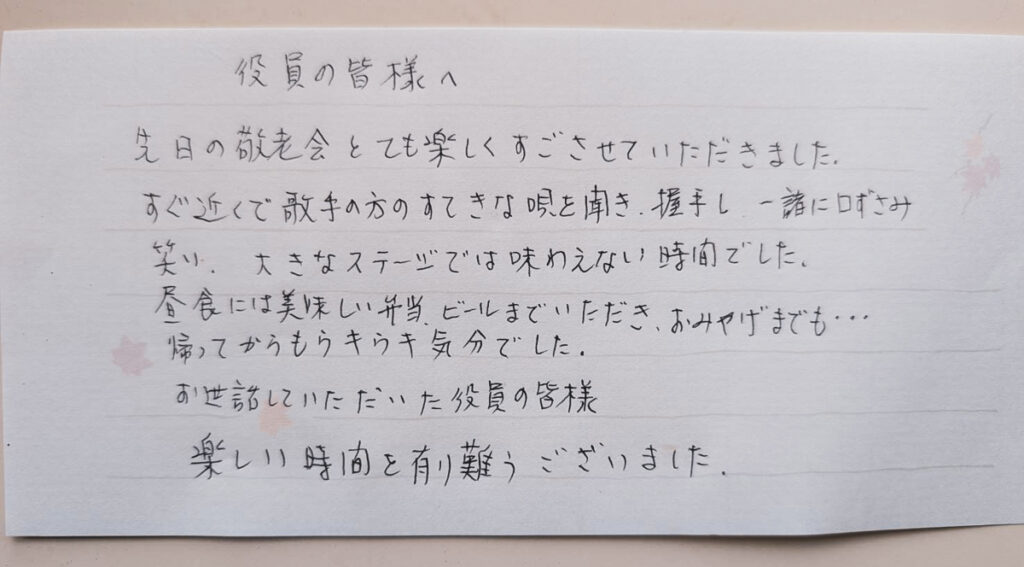 役員の皆様へ
先日の敬老会とても楽しくすごさせていただきました.
すぐ近くで歌手の方のすてきな唄を聞き、握手し、一諸に口ずさみ
笑い、大きなステージでは味わえない時間でした.
昼食には美味しい弁当、ビールまでいただき、おみやげまでも・・・
帰ってからもうキうキ気分でした.
お世話していただいた役員の皆様
楽しい時間を有り難うございました.